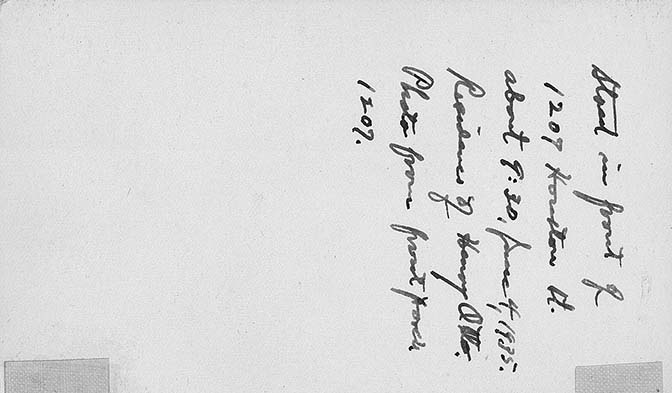 in front of
1209 Houston St.
about 9:30, June 4, 1935.
Residence of Henry
Photo from front porch
1209.